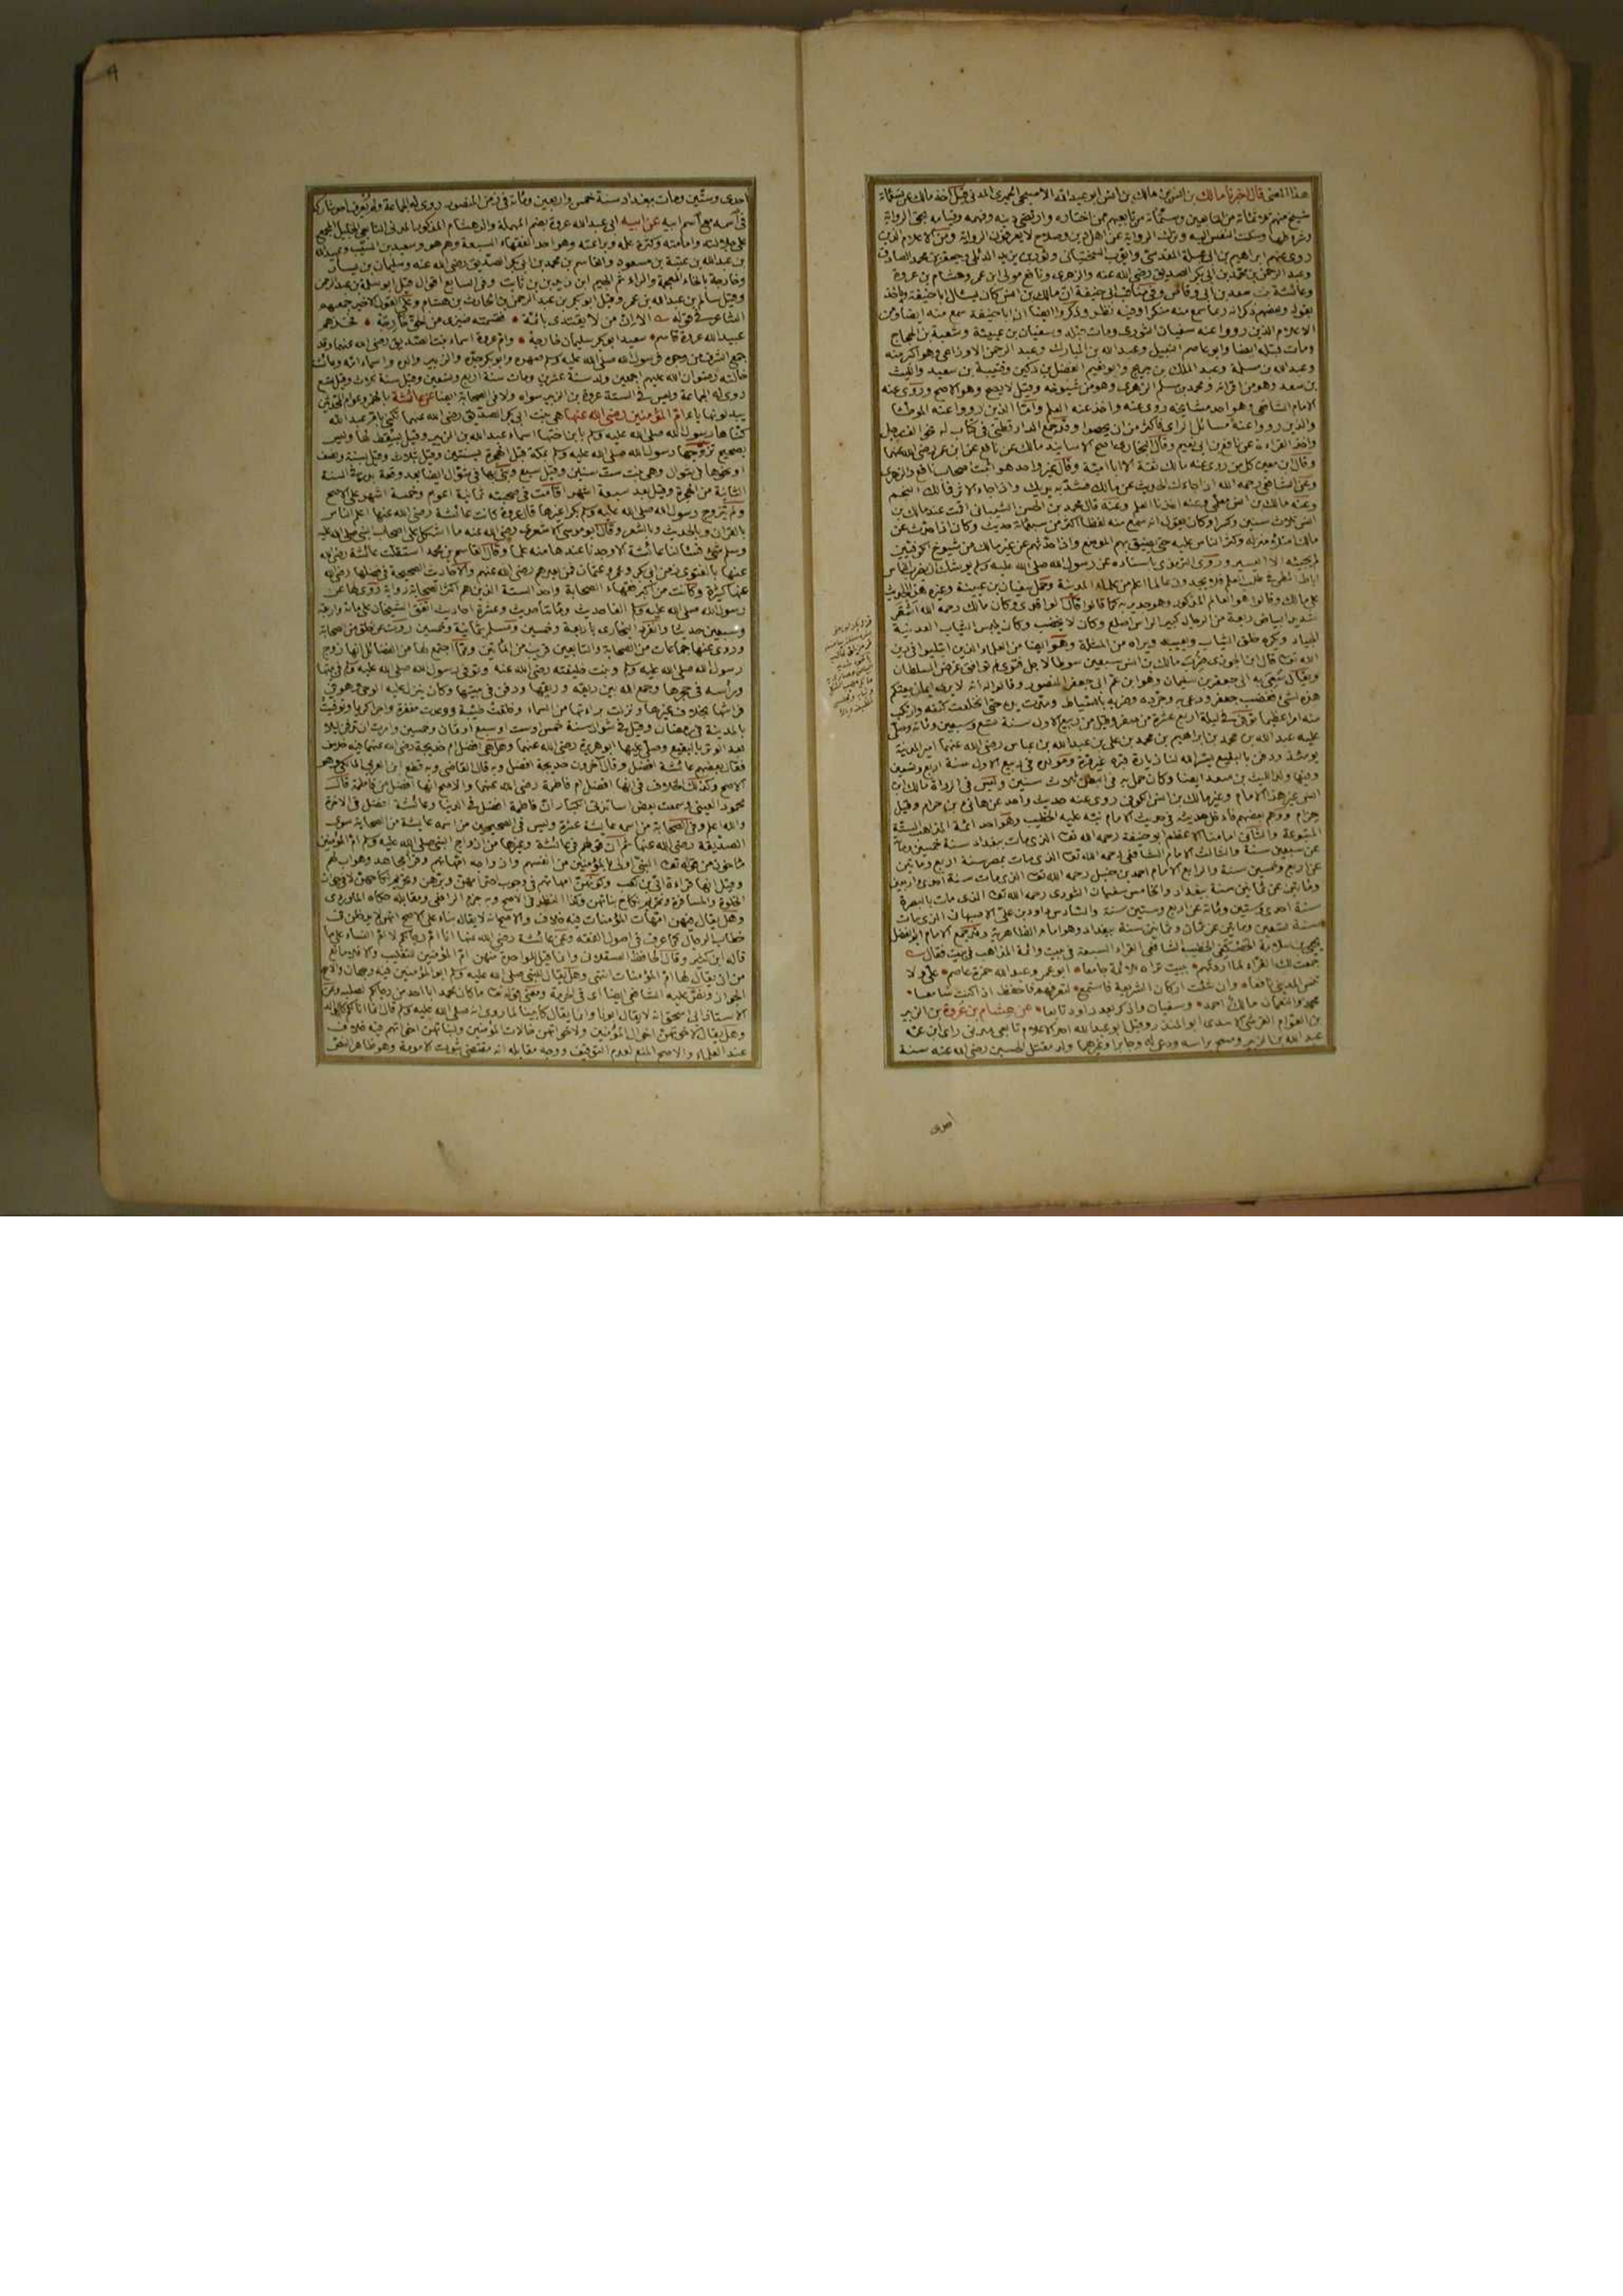 هذا المعنى قال اخبرنا مالك بن انس مالك بن انس ابو عبد الله الاصبحي الحميري المدني قيل اخذ مالك عن تسعمائة
شيخ منهم ثلاثمائة من التابعين وستمائة من تابعيهم ممن اختاره وارتضى دينه وفهمه وقيامه بحق الرواية
وشروطها وسكنت النفس اليه وترك الرواية عن اهل دين وصلاح لا يعرفون الرواية ومن الاعلام الذين
روى عنهم ابراهيم بن ابي عبلة المقدسي وايوب السختياني وثور بن يزيد الديلي وجعفر بن محمد الصادق
وعبد الرحمن بن محمد بن ابي بكر الصديق رضي الله عنه والزهري ونافع مولى ابن عمر وهشام بن عروة
وعائشة بنت سعد بن ابي وقاص وفي مناقب ابي حنيفة ان مالك بن انس كان يسال ابا حنيفة وياخذ
بقوله وبعضهم ذكر انه ربما سمع منه منكرا وفيه نظر وذكروا ايضا ان ابا حنيفة سمع منه ايضا ومن
الاعلام الذين رووا عنه سفيان الثوري ومات قبله وسفيان بن عيينة وشعبة بن الحجاج
ومات قبله ايضا وابو عاصم النبيل وعبد الله بن المبارك وعبد الرحمن الاوزاعي وهو اكبر منه
وعبد الله بن مسلمة وعبد الملك بن جريج وابو نعيم الفضل بن دكين وقتيبة بن سعيد والليث
بن سعد وهو من اقرانه ومحمد بن مسلم الزهري وهو من شيوخه وقيل لا يصح وهو الاصح وروى عنه
الامام الشافعي وهو احد مشايخه روى عنه واخذ عنه العلم واما الذين رووا عنه الموطا
والذين رووا عنه مسائل الراي فاكثر من ان يحصوا وقد جمع الدارقطني في كتاب له نحو الف رجل
واخذ القراءة عن نافع بن ابي نعيم وقال البخاري اصح الاسانيد مالك عن نافع عن ابن عمر رضي الله عنهما
وقال ابن معين كل من روى عنه مالك ثقة الا ابا امية وقال غير واحد هو اثبت اصحاب نافع والزهري
وعن الشافعي رحمه الله اذا جاءك الحديث عن مالك فشد به يديك واذا جاء الاثر فمالك النجم
وعنه مالك بن انس معلمي وعنه اخذنا العلم وعنه قال محمد بن الحسن الشيباني اقمت عند مالك بن
انس ثلاث سنين وكسرا وكان يقول انه سمع منه لفظا اكثر من سبعمائة حديث وكان اذا حدث عن
مالك امتلا منزله وكثر الناس عليه حتى يضيق بهم الموضع واذا حدثهم عن غير مالك من شيوخ الكوفيين
لم يجئه الا اليسير وروى الترمذي باسناده عن رسول الله صلى الله عليه وسلم يوشك ان يضرب الناس
اباط المطي في طلب العلم فلا يجدون عالما اعلم من عالم المدينة وحمل سفيان بن عيينة وغيره هذا الحديث
على مالك وقالوا هو العالم المذكور وهو جدير به كما قالوا قالوا وكان مالك رحمه الله اشقر
شديد البياض ربعة من الرجال كبير الراس اصلع وكان لا يخضب وكان يلبس الثياب العدنية
الجياد ويكره حلق الشارب ويعيبه ويراه من المثلة وهو ايضا من العلماء الذين ابتلوا في دين
الله تعالى قال ابن الجوزي ضرب مالك بن انس سبعين سوطا لاجل فتوى لم توافق غرض السلطان
ويقال سعي به الى جعفر بن سليمان وهو ابن عم ابي جعفر المنصور وقالوا له انه لا يرى ايمان بيعتكم
هذه لشيء فغضب جعفر ودعى به وجرده وضربه بالسياط ومدت يده حتى انخلعت كتفه وارتكب
منه امرا عظيما توفي في ليلة اربع عشرة من صفر وقيل من ربيع الاول سنة تسع وسبعين ومائة وصلى
عليه عبد الله بن محمد بن ابراهيم بن محمد بن علي بن عبد الله بن عباس رضي الله عنهما امير المدينة
يومئذ ودفن بالبقيع يسر الله لنا زيارة قبره غير مرة ومولده في ربيع الاول سنة اربع وتسعين
وفيها ولد الليث بن سعد ايضا وكان حمل به في البطن ثلاث سنين وليس في الرواة مالك بن
انس غير هذا الامام وغير مالك بن انس الكوفي روى عنه حديث واحد عن هاني بن حرام وقيل
حزام ووهم بعضهم فادخل حديثه في حديث الامام نبه عليه الخطيب وهو احد ائمة المذاهب الستة
المتبوعة والثاني امامنا الاعظم ابو حنيفة رحمه الله تعالى الذي مات ببغداد سنة خمسين ومائة
عن سبعين سنة والثالث الامام الشافعي رحمه الله تعالى الذي مات بمصر سنة اربع ومايتين
عن اربع وخمسين سنة والرابع الامام احمد بن حنبل رحمه الله تعالى الذي مات سنة احدى واربعين
ومائتين عن ثمانين سنة ببغداد والخامس سفيان الثوري رحمه الله تعالى الذي مات بالبصرة
سنة احدى وستين ومائة عن اربع وستين سنة والسادس داود بن علي الاصبهاني الذي مات
سنة تسعين ومايتين عن ثمان وثمانين سنة ببغداد وهو امام الظاهرية وقد جمع الامام ابو الفضل
يحيى بن سلامة الحصكفي الخطيب الشافعي القراء السبعة في بيت وائمة المذاهب في بيت فقال
جمعت لك القراء لما اردتهم ببيت تراه للائمة جامعا ابو عمرو عبد الله حمزة عاصم علي ولا
تنس المديني نافعا وان شئت اركان الشريعة فاستمع لتعرفهم فاحفظ اذا كنت سامعا
محمد والنعمان مالك احمد وسفيان واذكر بعد داود تابعا عن هشام بن عروة بن الزبير
بن العوام القرشي الاسدي ابو المنذر وقيل ابو عبد الله احد الاعلام تابعي مدني راى ابن عمر
عبد الله بن الزبير ومسح براسه ودعى له وجابرا وغيرهما ولد مقتل الحسين رضي الله عنه سنة
احدى
احدى وستين ومات ببغداد سنة خمس واربعين ومائة في زمن المنصور روى له الجماعة ولم يعرف احد شاركه
في اسمه مع اسم ابيه عن ابيه ابي عبد الله عروة بضم المهملة والد هشام المذكور المدني التابعي الجليل المجمع
على جلالته وامامته وكثرة علمه وبراعته وهو احد الفقهاء السبعة وهم هو وسعيد بن المسيب وعبيد الله
بن عبد الله بن عتبة بن مسعود والقاسم بن محمد بن ابي بكر الصديق رضي الله عنه وسليمان بن يسار
وخارجة بالخاء المعجمة والراء ثم الجيم ابن زيد بن ثابت وفي السابع اقوال قيل ابو سلمة بن عبد الرحمن
وقيل سالم بن عبد الله بن عمر وقيل ابو بكر بن عبد الرحمن بن الحارث بن هشام وعلى القول الاخير جمعهم
الشاعر في قوله الا ان من لا يقتدي بائمة فقسمته ضيزى من الحق خارجة فخذهم
عبيد الله عروة قاسم سعيد ابو بكر سليمان خارجة وام عروة اسماء بنت الصديق رضي الله عنهما وقد
جمع الشرف من وجوه فرسول الله صلى الله عليه وسلم صهره وابو بكر جده والزبير والده واسماء امه وعائشة
خالته رضوان الله عليهم اجمعين ولد سنة عشرين ومات سنة اربع وتسعين وقيل سنة ثلاث وقيل تسع
روى له الجماعة وليس في الستة عروة بن الزبير سواه ولا في الصحابة ايضا عن عائشة بالهمزة وعوام المحدثين
يبدلونها ياء ام المؤمنين رضي الله عنها هي بنت ابي بكر الصديق رضي الله عنهما تكنى بام عبد الله
كناها رسول الله صلى الله عليه وسلم بابن اختها اسماء عبد الله بن الزبير وقيل بسقط لها وليس
بصحيح تزوجها رسول الله صلى الله عليه وسلم بمكة قبل الهجرة بسنتين وقيل بثلاث وقيل بسنة ونصف
او نحوها في شوال وهي بنت ست سنين وقيل سبع وبنى بها في شوال ايضا بعد وقعة بدر في السنة
الثانية من الهجرة وقيل بعد سبعة اشهر اقامت في صحبته ثمانية اعوام وخمسة اشهر على الاصح
ولم يتزوج رسول الله صلى الله عليه وسلم بكرا غيرها قال عروة كانت عائشة رضي الله عنها اعلم الناس
بالقران وبالحديث وبالشعر وقال ابو موسى الاشعري رضي الله عنه ما اشكل على اصحاب النبي صلى الله عليه
وسلم شيء فسالنا عائشة الا وجدنا عندها منه علما وقال القاسم بن محمد استقلت عائشة رضي الله
عنها بالفتوى زمن ابي بكر وعمر وعثمان فمن بعدهم رضي الله عنهم والاحاديث الصحيحة في فضلها رضي الله
عنها كثيرة وكانت من اكبر فقهاء الصحابة واحد الستة الذين هم اكثر الصحابة رواية روي لها عن
رسول الله صلى الله عليه وسلم الفا حديث ومائتا حديث وعشرة احاديث اتفق الشيخان على مائة واربعة
وسبعين حديثا وانفرد البخاري باربعة وخمسين ومسلم بثمانية وخمسين روت عن خلق من الصحابة
وروى عنها جماعات من الصحابة والتابعين قريب من المائتين ومما اجتمع لها من الفضائل انها زوج
رسول الله صلى الله عليه وسلم وبنت خليفته رضي الله عنه وتوفي رسول الله صلى الله عليه وسلم في بيتها
وراسه في حجرها وجمع الله بين ريقه وريقها ودفن في بيتها وكان ينزل عليه الوحي وهو في
فراشها بخلاف غيرها ونزلت براءتها من السماء وخلقت طيبة ووعدت مغفرة واجرا كريما وتوفيت
بالمدينة في رمضان وقيل في شوال سنة خمس او ست او سبع او ثمان وخمسين وامرت ان تدفن ليلا
بعد الوتر بالبقيع وصلى عليها ابو هريرة رضي الله عنهما وهل هي افضل ام خديجة رضي الله عنهما فيه خلاف
فقال بعضهم عائشة افضل وقال اخرون خديجة افضل وبه قال القاضي وبه قطع ابن العربي المالكي وهو
الاصح وكذلك الخلاف في انها افضل ام فاطمة رضي الله عنهما والاصح انها افضل من فاطمة قال
محمود العيني وسمعت بعض اساتذتي الكبار ان فاطمة افضل في الدنيا وعائشة افضل في الاخرة
والله اعلم وفي الصحابة من اسمه عايشة عشرة وليس في الصحيحين من اسمه عايشة من الصحابة سوى
الصديقة رضي الله عنها ثم ان قولهم في عائشة وغيرها من ازواج النبي صلى الله عليه وسلم ام المؤمنين
ماخوذ من قوله تعالى النبي اولى بالمؤمنين من انفسهم وازواجه امهاتهم وقرا مجاهد وهو اب لهم
وقيل انها قراءة ابي بن كعب وكونهن امهاتهم في وجوب احترامهن وبرهن وتحريم نكاحهن لا في جواز
الخلوة والمسافرة وتحريم نكاح بناتهن وكذا النظر في الاصح وبه جزم الرافعي ومقابله حكاه الماوردي
وهل يقال فيهن امهات المؤمنات فيه خلاف والاصح انه لا يقال بناء على الاصح انهن لا يدخلن في
خطاب الرجال كما عرف في اصول الفقه وعن عائشة رضي الله عنها انا ام رجالكم لا ام النساء على ما
قاله ابن كثير وقال الحافظ العسقلاني وانما قيل للواحدة منهن ام المؤمنين للتغليب والا فلا مانع
من ان يقال لها ام المؤمنات انتهى وهل يقال للنبي صلى الله عليه وسلم ابو المؤمنين فيه وجهان والاصح
الجواز ونص عليه الشافعي ايضا اي في الحرمة ومعنى قوله تعالى ما كان محمد ابا احد من رجالكم لصلبه وعن
الاستاذ ابي اسحق انه لا يقال ابونا وانما يقال كابينا لما روي انه صلى الله عليه وسلم قال انما انا لكم كالوالد
وهل يقال لاخوتهن اخوال المؤمنين ولاخواتهن خالات المؤمنين ولبناتهن اخواتهم فيه خلاف
عند العلماء والاصح المنع لعدم التوقيف ووجه مقابله انه مقتضى ثبوت الامومة وهو ظاهر النص